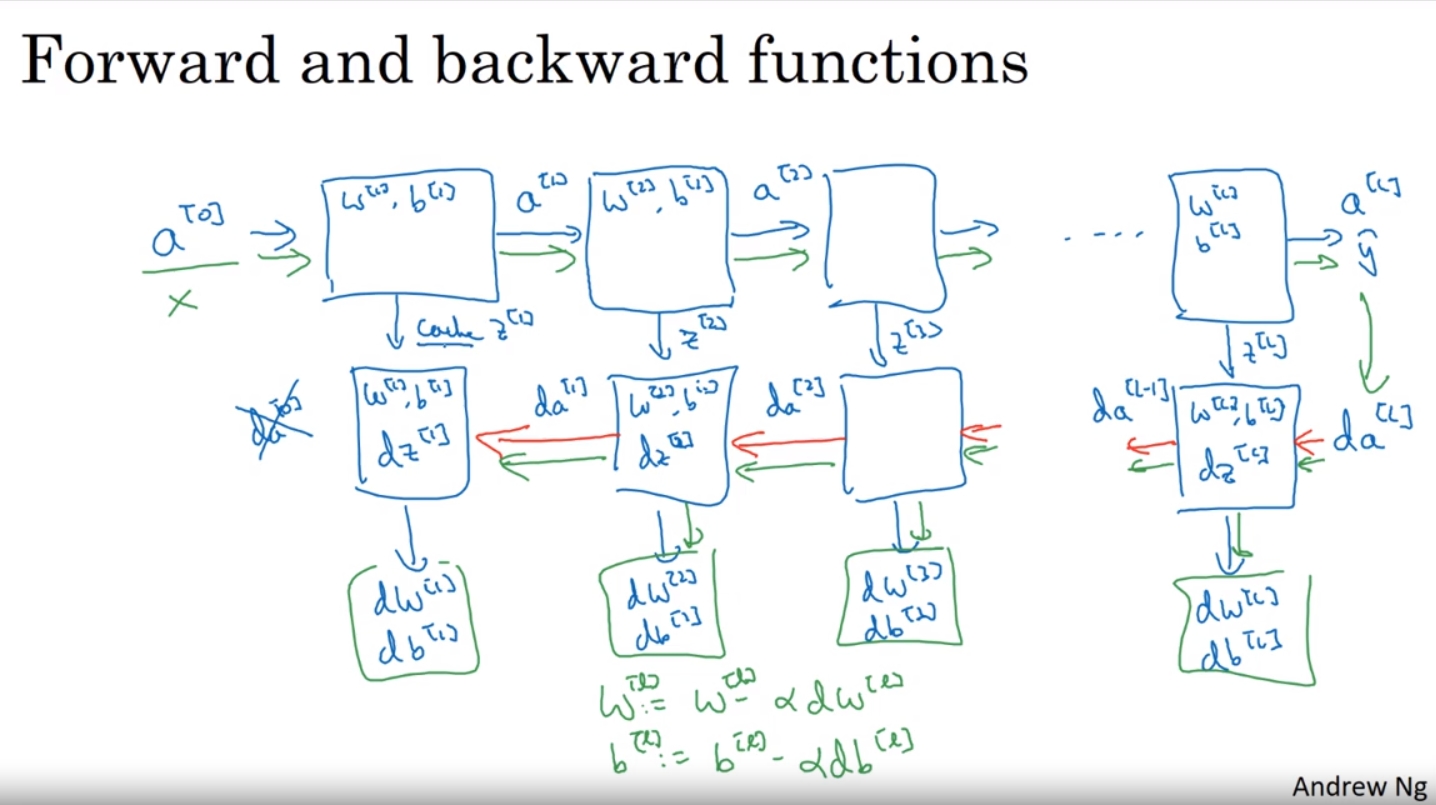 Forward and backward functions
a^[0] w^[1], b^[1] a^[1] w^[2], b^[2] a^[2] w^[L] a^[L]
x b^[L] ŷ
cache z^[1] z^[2] z^[3] z^[L]
da^[0] w^[1], b^[1] da^[1] w^[2], b^[2] da^[2] da^[L-1] w^[L], b^[L] da^[L]
dz^[1] dz^[2] dz^[L]
dw^[1] dw^[2] dw^[3] dw^[L]
db^[1] db^[2] db^[3] db^[L]
w^[l] := w^[l] - αdw^[l]
b^[l] := b^[l] - αdb^[l]
Andrew Ng